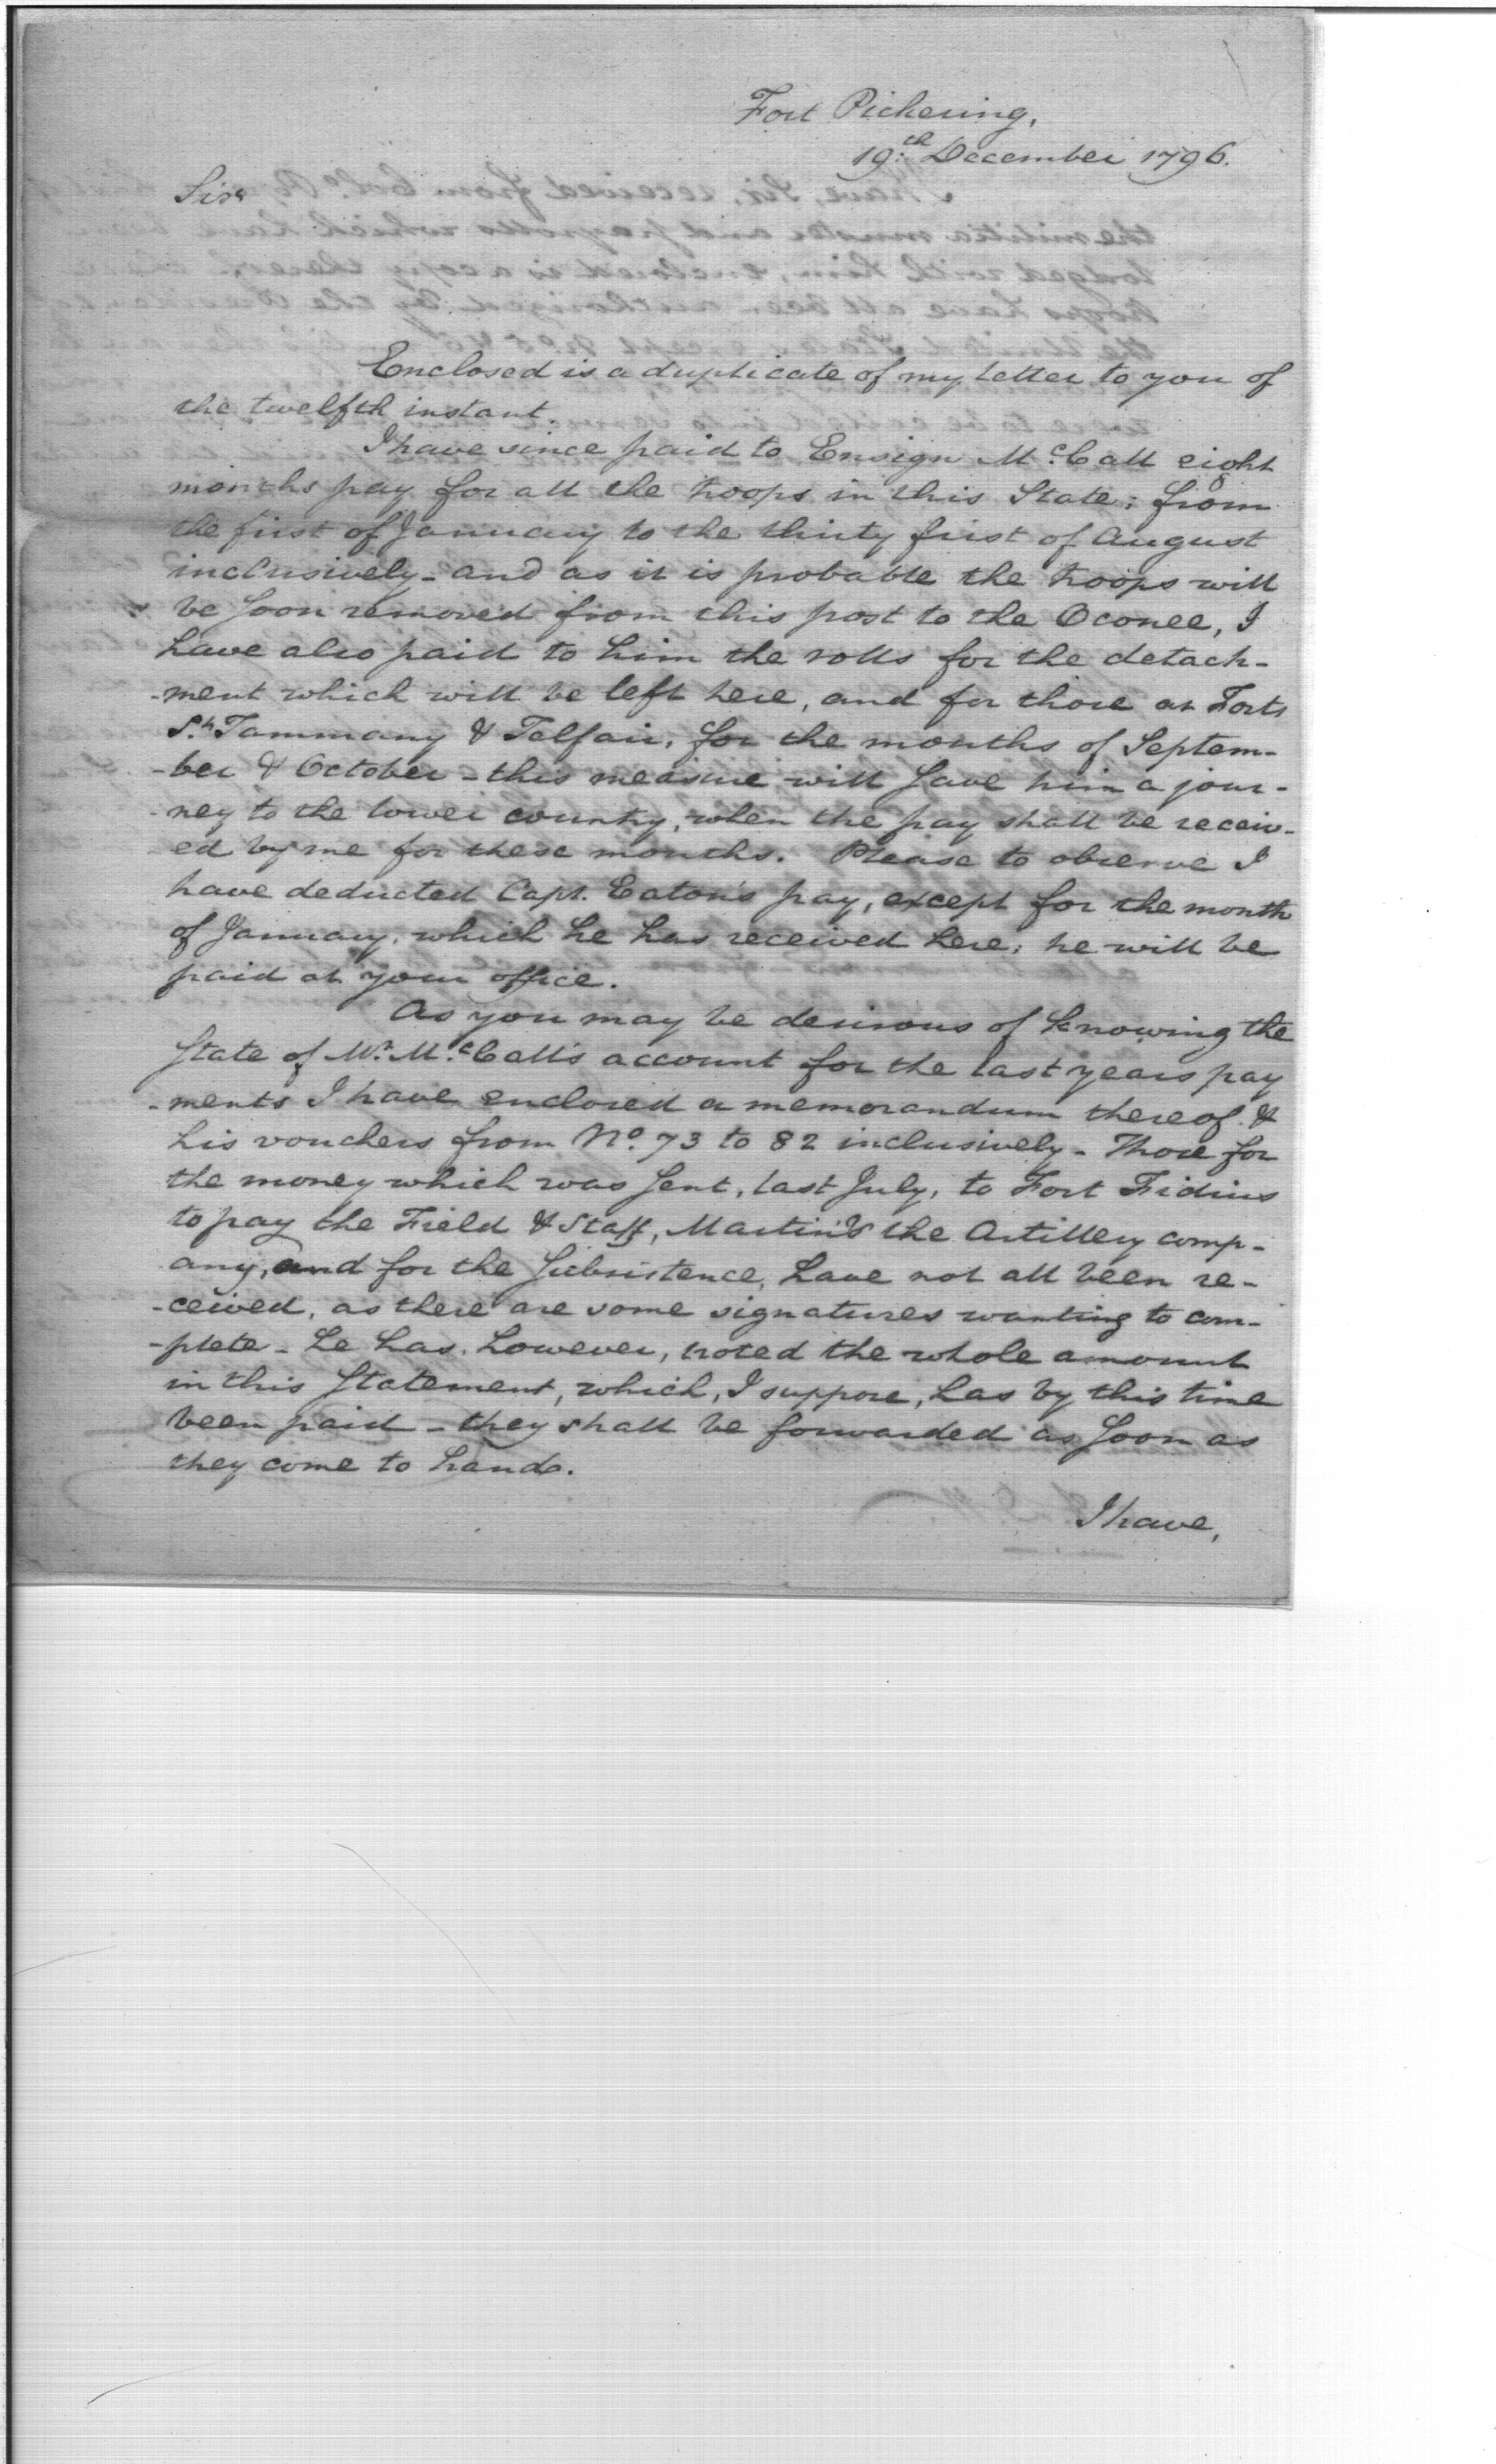 Fort Pickering,
19th December 1796.
Sir,
Enclosed is a duplicate of my letter to you of
the twelfth instant.
I have since paid to Ensign McCall eight
months pay for all the troops in this State; from
the first of January to the thirty first of August
inclusively - and as it is probable the troops will
be soon removed from this post to the Oconee, I
have also paid to him the rolls for the detach-
-ment which will be left here, and for those at Forts
St. Tammany & Telfair, for the months of Septem-
-ber & October - this measure will save him a jour-
-ney to the lower country, when the pay shall be receiv-
-ed by me for these months. Please to observe I
have deducted Capt. Eaton's pay, except for the month
of January, which he has received here; he will be
paid at your office.
As you may be desirous of knowing the
State of Mr. McCall's account for the last years pay
-ments I have enclosed a memorandum thereof &
his vouchers from No. 73 to 82 inclusively - Those for
the money which was sent, last July, to Fort Fidius
to pay the Field & Staff, Martin's & the Artillery comp-
any, and for the Subsistence, have not all been re-
-ceived, as there are some signatures wanting to com-
-plete - he has, however, noted the whole amount
in this Statement, which, I suppose, has by this time
been paid - they shall be forwarded as soon as
they come to hand.
I have,